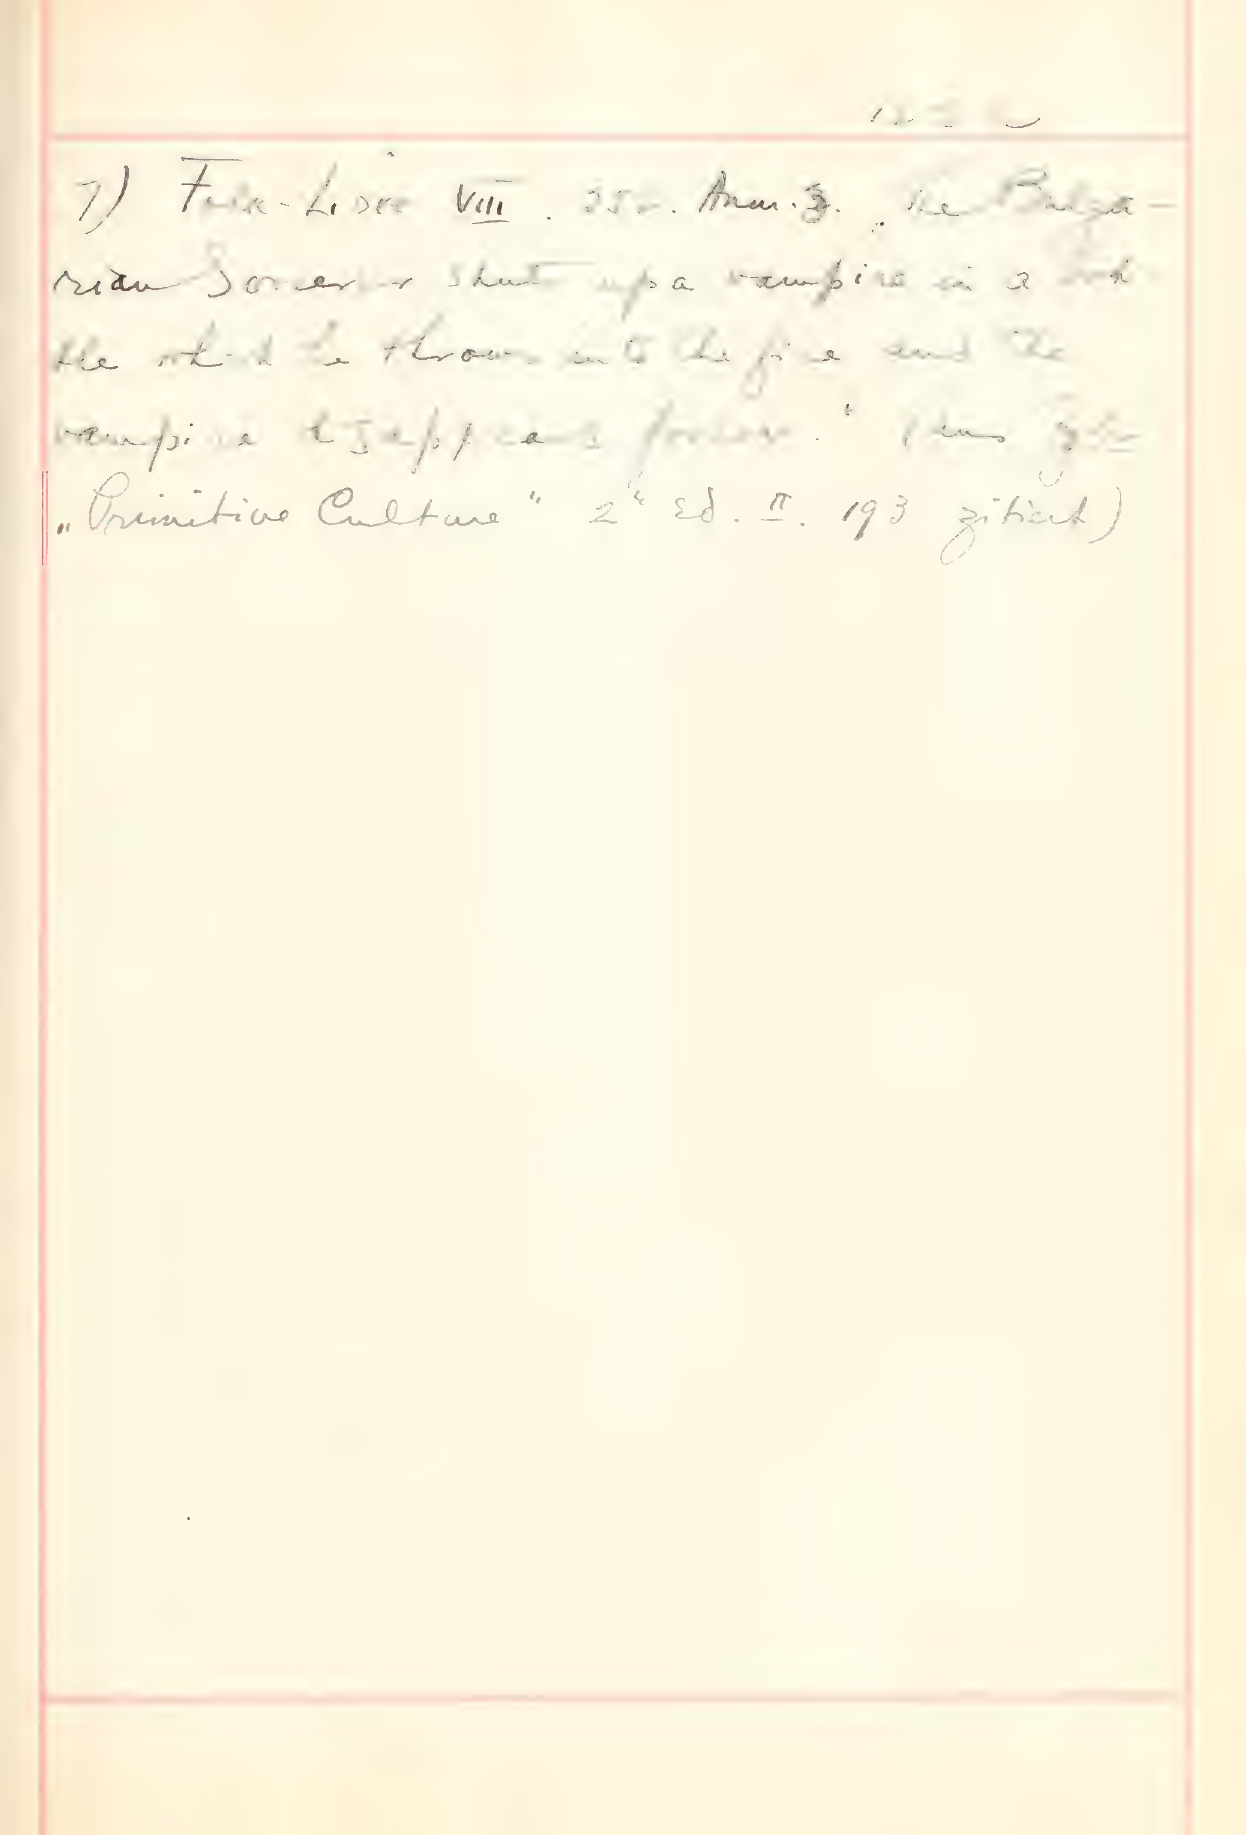 7) Folk-Lore VIII. Anm. 3. „the Bulga-
rian Sorcerer shuts up a vampire in a bot-
tle which he throws into the fire and the
vampire disappears forever." (aus
„Primitive Culture" 2" Ed. II. 193 zitiert)